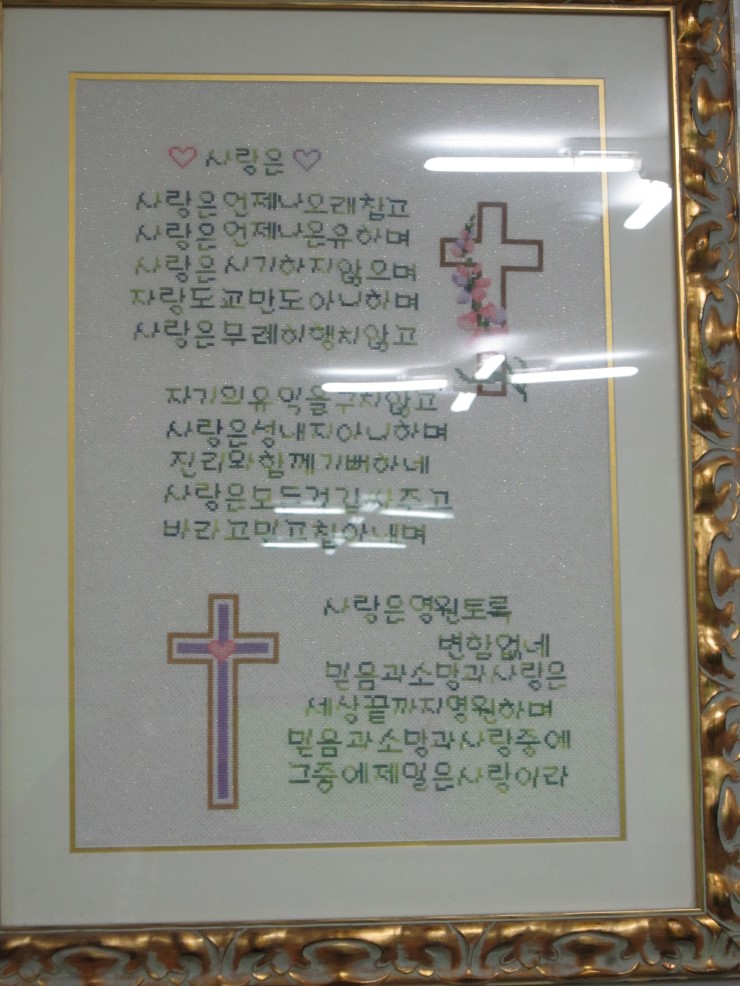 ♡ 사랑은 ♡
사랑은 언제나 오래참고
사랑은 언제나 온유하며
사랑은 시기하지 않으며
자랑도 교만도 아니하며
사랑은 무례히 행치않고
자기의 유익을 구치않고
사랑은 성내지 아니하며
진리와 함께 기뻐하네
사랑은 모든것 감싸주고
바라고 믿고 참아내며
사랑은 영원토록
변함없네
믿음과 소망과 사랑은
세상끝까지 영원하며
믿음과 소망과 사랑중에
그중에 제일은 사랑이라